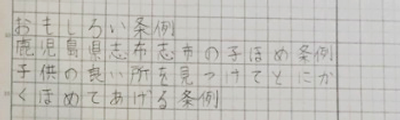 おもしろい条例
鹿児島県志布志市の子ほめ条例
子供の良い所を見つけてとにか
くほめてあげる条例